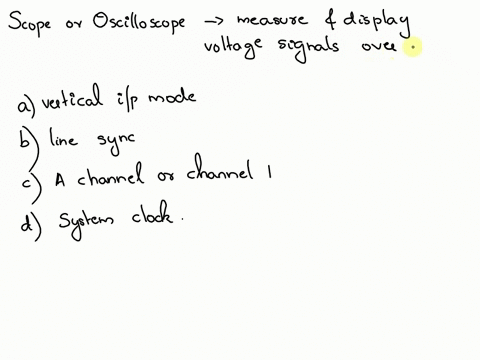 Scope or Oscilloscope → measure & display
voltage signals over
a) vertical i/p mode
b) line sync
c) A channel or channel 1
d) System clock.